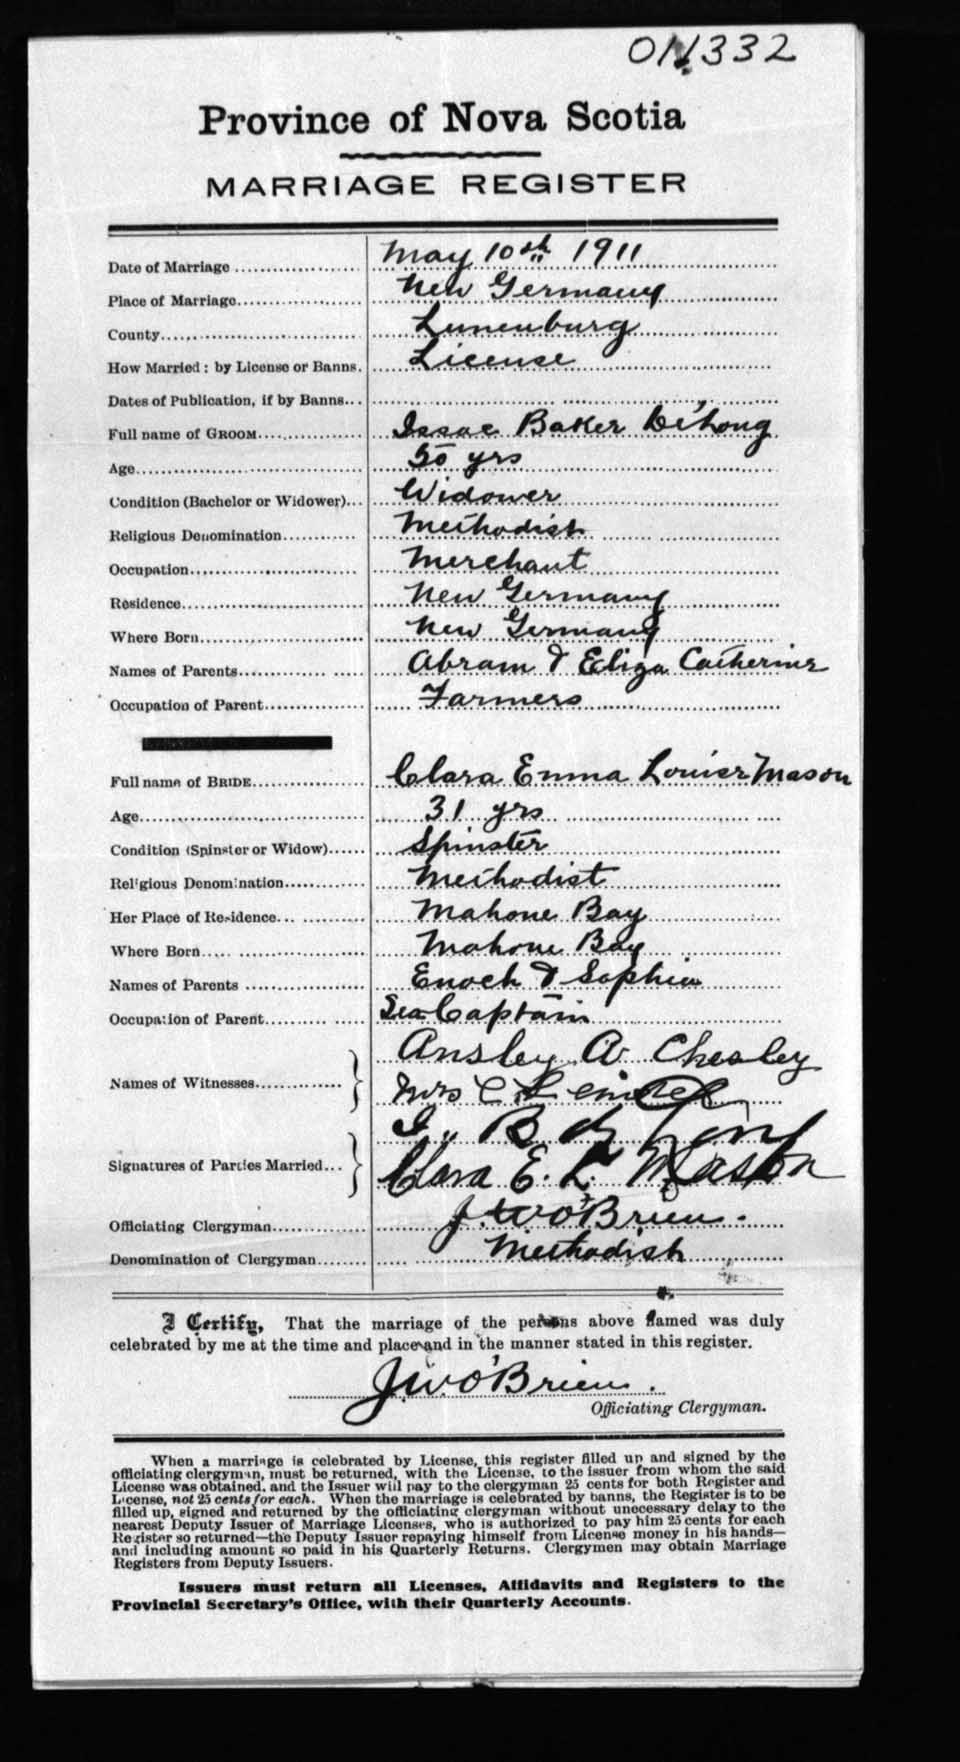 011332
Province of Nova Scotia
MARRIAGE REGISTER
Date of Marriage May 10th 1911
Place of Marriage New Germany
County Lunenburg
How Married: by License or Banns. License
Dates of Publication, if by Banns
Full name of GROOM Issac Baker De'Long
Age 50 yrs
Condition (Bachelor or Widower) Widower
Religious Denomination Methodist
Occupation Merchant
Residence New Germany
Where Born New Germany
Names of Parents Abram & Eliza Catherine
Occupation of Parent Farmers
Full name of BRIDE Clara Emma Louise Mason
Age 31 yrs
Condition (Spinster or Widow) Spinster
Religious Denomination Methodist
Her Place of Residence Mahone Bay
Where Born Mahone Bay
Names of Parents Enoch & Sophia
Occupation of Parent Sea Captain
Names of Witnesses Ansley A Chesley
Mrs C
Signatures of Parties Married I. B. DeLong
Clara E. L. Mason
Officiating Clergyman J. W. O'Brien.
Denomination of Clergyman Methodist
I Certify, That the marriage of the persons above named was duly
celebrated by me at the time and place and in the manner stated in this register.
J W O'Brien.
Officiating Clergyman.
When a marriage is celebrated by License, this register filled up and signed by the
officiating clergyman, must be returned, with the License, to the issuer from whom the said
License was obtained, and the Issuer will pay to the clergyman 25 cents for both Register and
License, not 25 cents for each. When the marriage is celebrated by banns, the Register is to be
filled up, signed and returned by the officiating clergyman without unnecessary delay to the
nearest Deputy Issuer of Marriage Licenses, who is authorized to pay him 25 cents for each
Register so returned—the Deputy Issuer repaying himself from License money in his hands—
and including amount so paid in his Quarterly Returns. Clergymen may obtain Marriage
Registers from Deputy Issuers.
Issuers must return all Licenses, Affidavits and Registers to the
Provincial Secretary's Office, with their Quarterly Accounts.